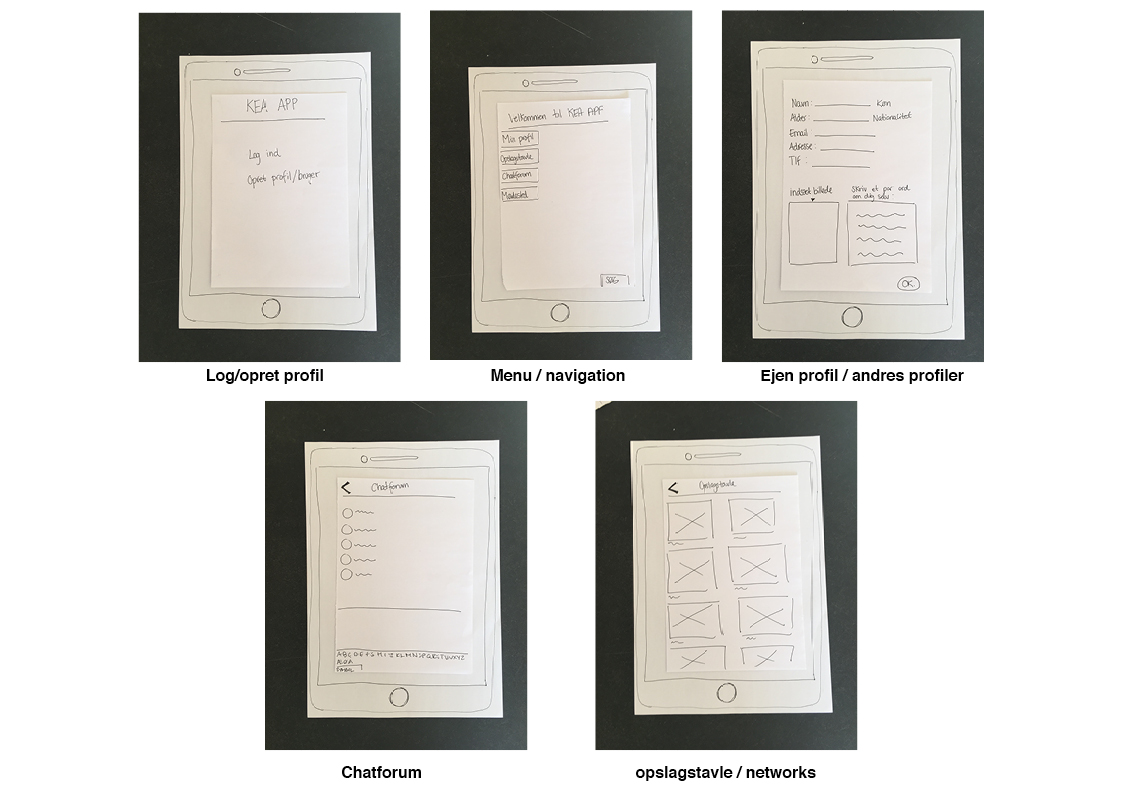 KEA APP
Log ind
Opret profil/bruger
Log/opret profil
Velkommen til KEA APP
Min profil
Opslagstavle
Chatforum
Mødested
SØG
Menu / navigation
Navn: Køn
Alder: Nationalitet
Email
Adresse:
Tlf:
Indsæt billede
Skriv et par ord
om dig selv:
OK
Ejen profil / andres profiler
Chatforum
Chatforum
Opslagstavle
opslagstavle / networks